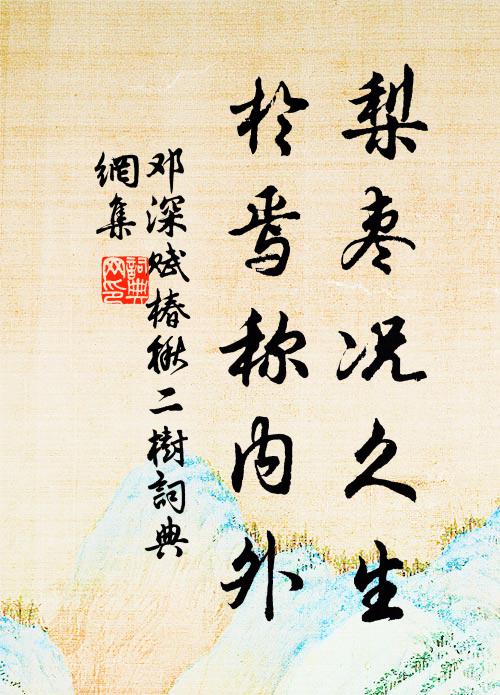 梨枣况久生
於焉称内外
邓深赋椿楸二樹詞典
網集
詞典
网印